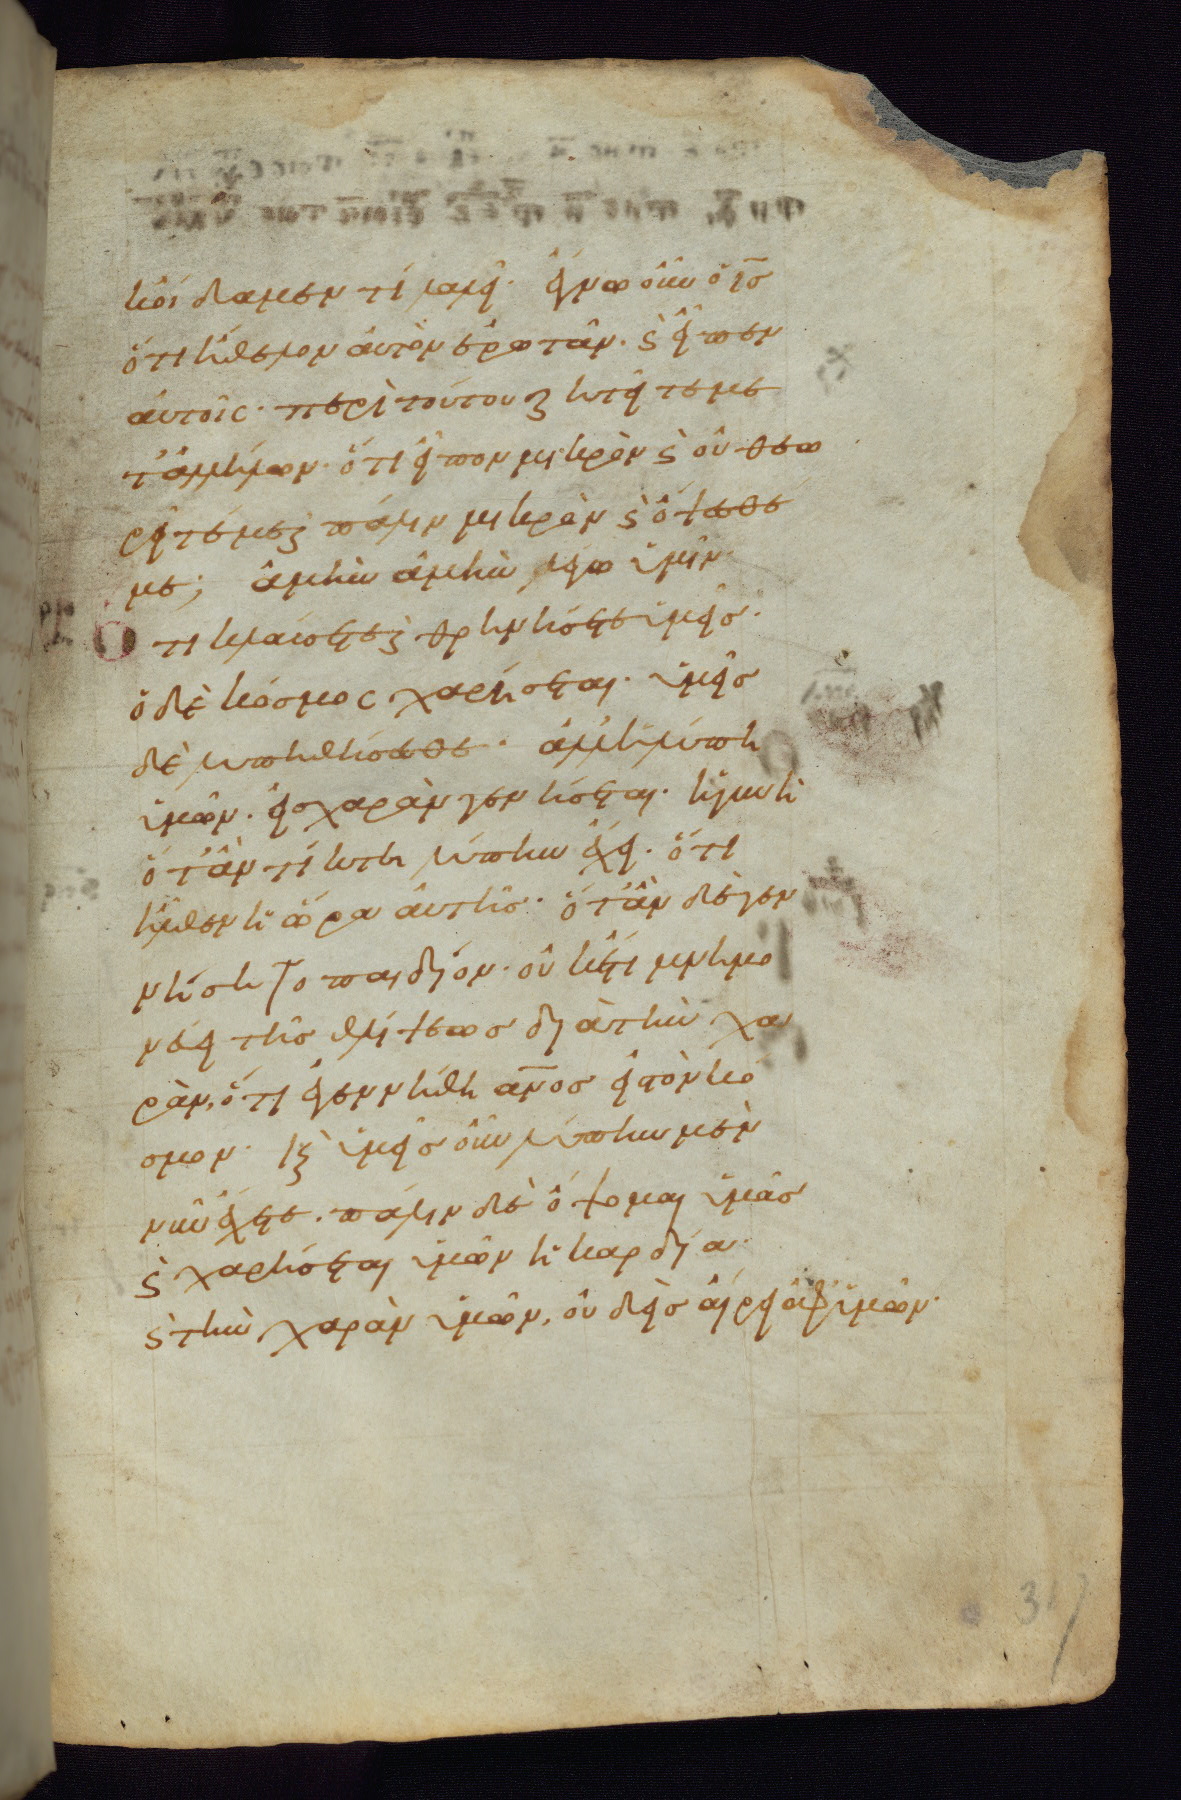 κ οἴδαμεν τί λαλεῖ· ἔγνω οὖν ὁ ι̅ς̅
ὅτι ἤθελον αὐτὸν ἐρωτᾶν· ϛ̀ εἶπεν
αὐτοῖς· περὶ τούτου ζητεῖτε με
τ' ἀλλήλων· ὅτι εἶπον μικρὸν ϛ̀ οὐ θεω
ρεῖτέ με ϛ̀ πάλιν μικρὸν ϛ̀ ὄψεσθέ
με; ἀμὴν ἀμὴν λέγω ὑμῖν
Ὅτι κλαύσετε ϛ̀ θρηνήσετε ὑμεῖς·
ὁ δὲ κόσμος χαρήσεται· ὑμεῖς
δὲ λυπηθήσεσθε· ἀλλ' ἡ λύπη
ὑμῶν· εἰς χαρὰν γενήσεται· ἡ γυνὴ
ὅταν τίκτη λύπην ἔχει· ὅτι
ἦλθεν ἡ ὥρα αὐτῆς· ὅταν δὲ γεν
νήση το παιδίον· οὐκέτι μνημο
νεύει τῆς θλίψεως διὰ τὴν χα
ρὰν, ὅτι ἐγεννήθη α̅ν̅ο̅ς̅ εἰς τὸν κό
σμον· κ̀ ὑμεῖς οὖν λύπην μὲν
νῦν ἔχετε· πάλιν δὲ ὄψομαι ὑμᾶς
ϛ̀ χαρήσεται ὑμῶν ἡ καρδία·
ϛ̀ τὴν χαρὰν ὑμῶν, οὐδεὶς αἴρει ἀφ' ὑμῶν·